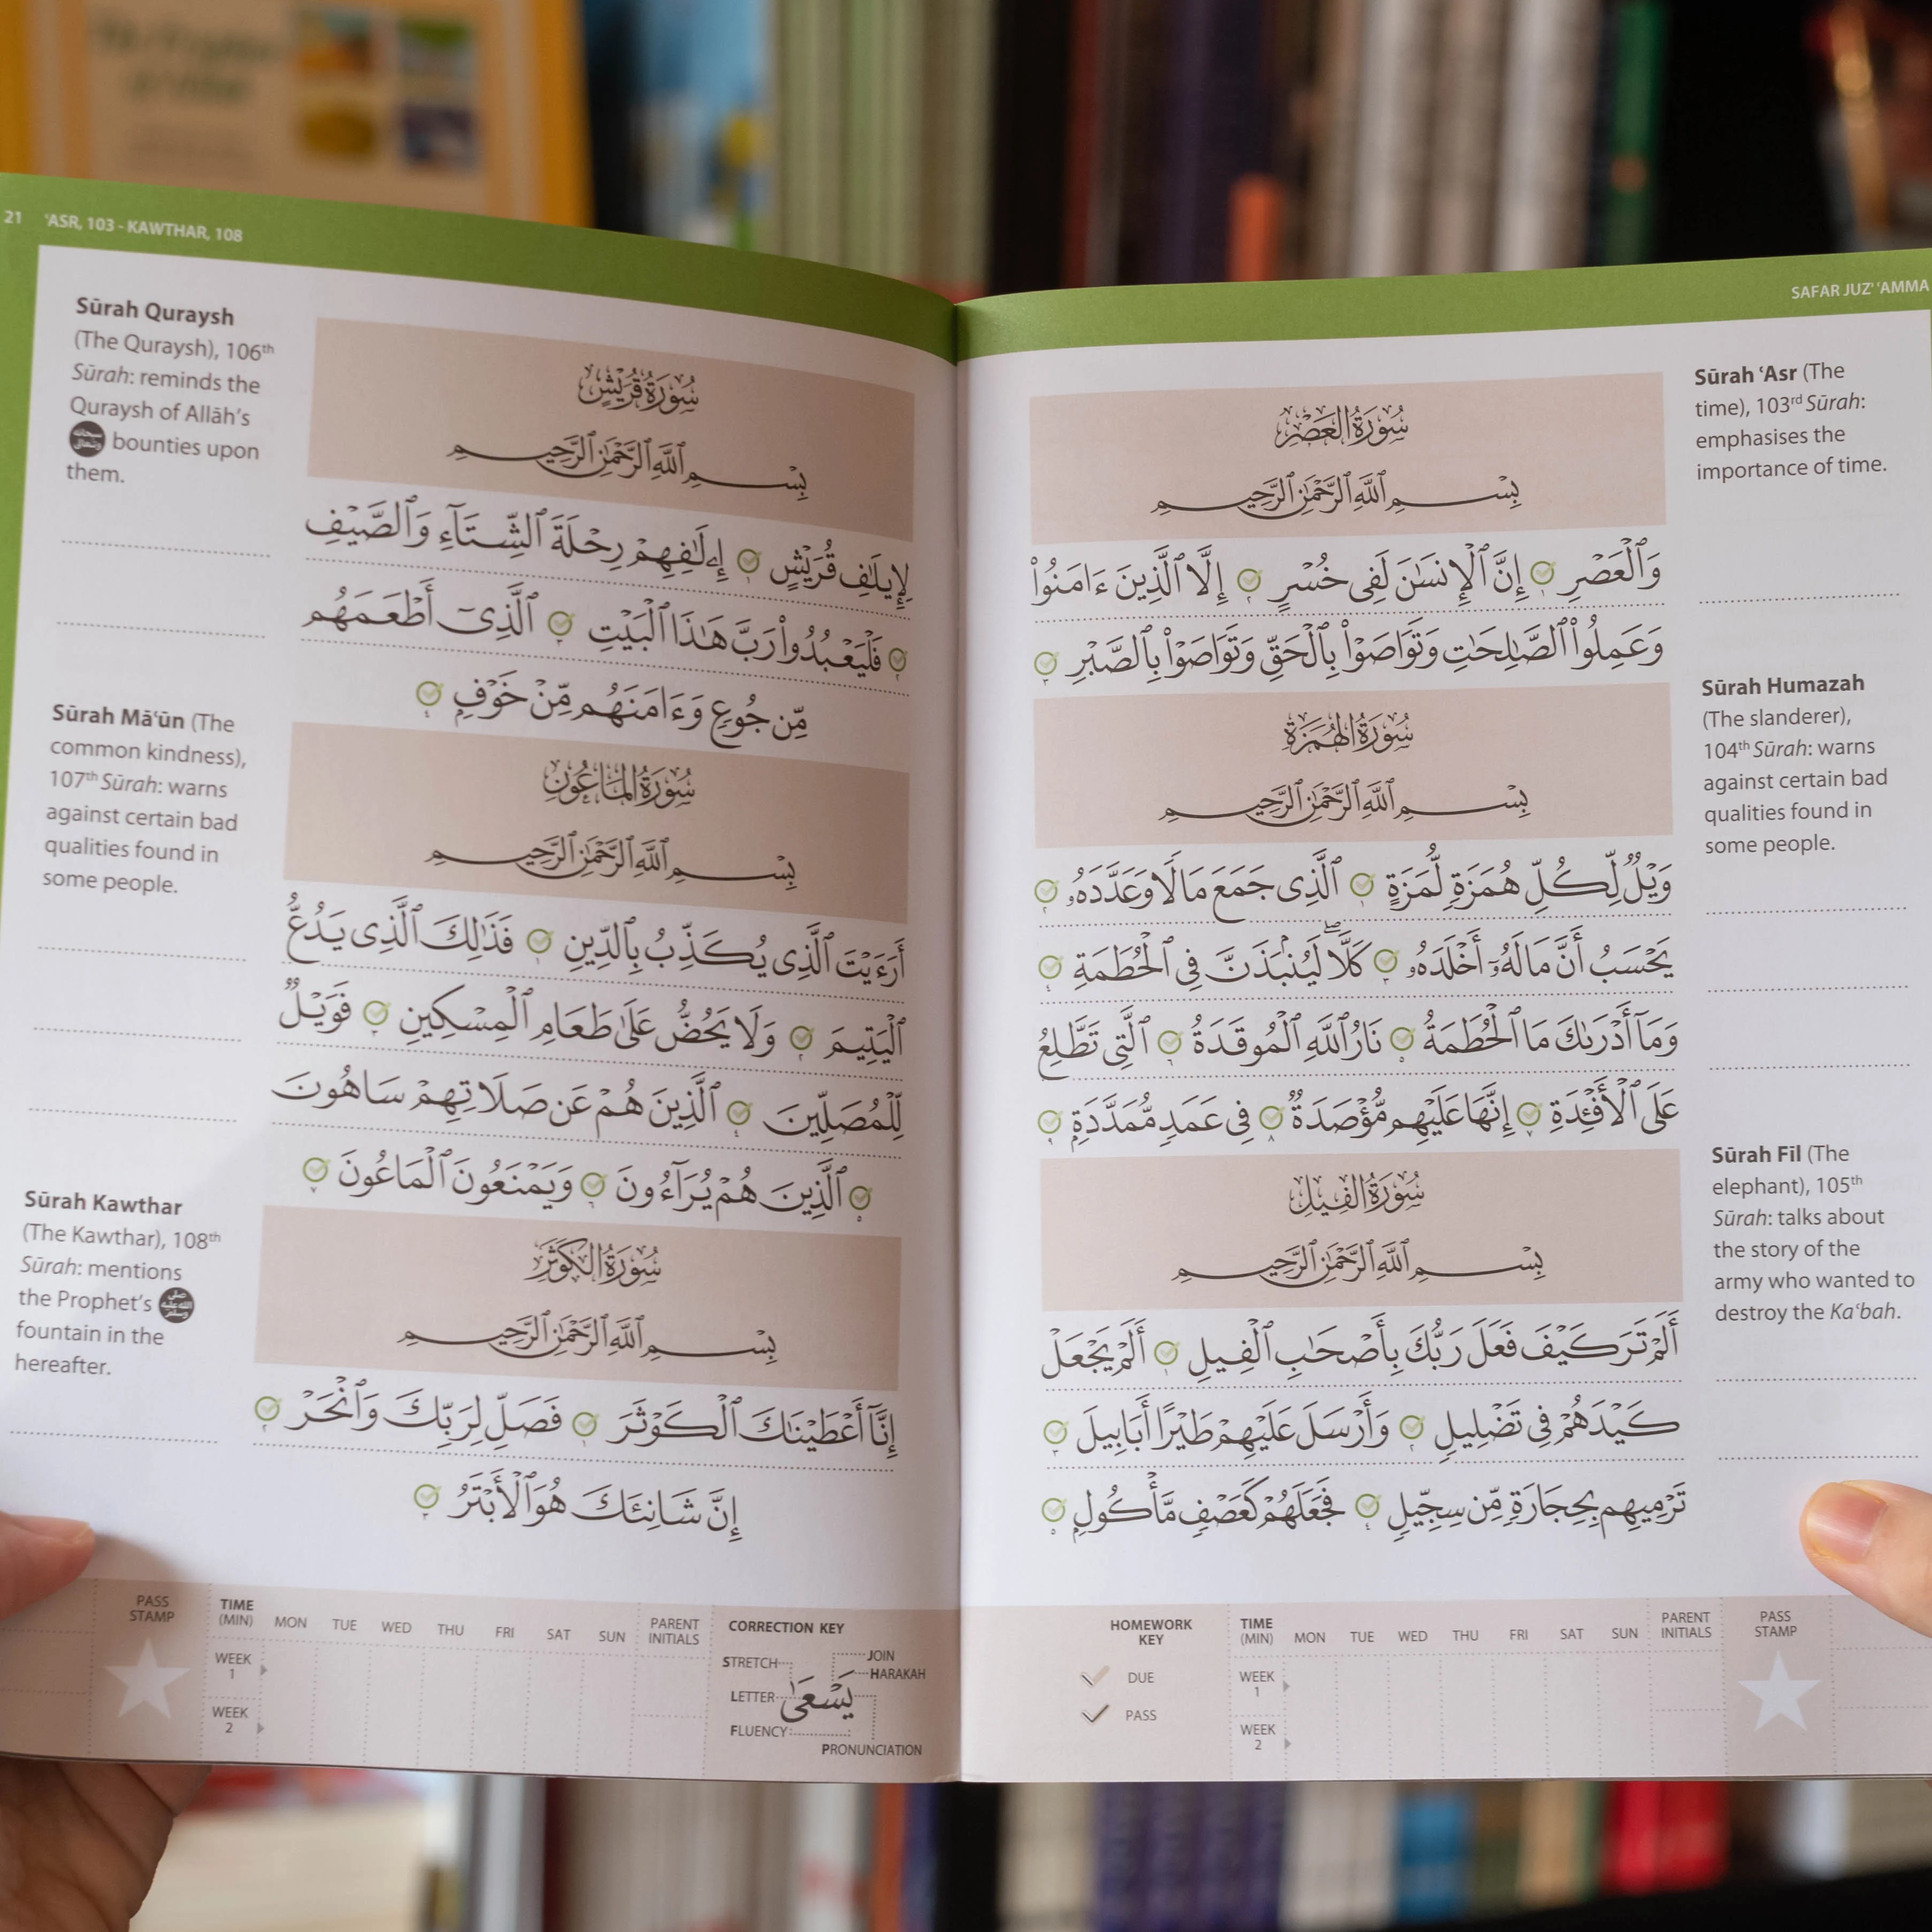 SAFAR JUZ' 'AMMA
Sūrah ʿAsr (The
time), 103rd Sūrah:
emphasises the
importance of time.
سُورَةُ العَصْرِ
بِسْمِ ٱللَّهِ ٱلرَّحْمَٰنِ ٱلرَّحِيمِ
وَٱلْعَصْرِ ١ إِنَّ ٱلْإِنسَٰنَ لَفِى خُسْرٍ ٢ إِلَّا ٱلَّذِينَ ءَامَنُوا۟
وَعَمِلُوا۟ ٱلصَّٰلِحَٰتِ وَتَوَاصَوْا۟ بِٱلْحَقِّ وَتَوَاصَوْا۟ بِٱلصَّبْرِ ٣
Sūrah Humazah
(The slanderer),
104th Sūrah: warns
against certain bad
qualities found in
some people.
سُورَةُ الهُمَزَةِ
بِسْمِ ٱللَّهِ ٱلرَّحْمَٰنِ ٱلرَّحِيمِ
وَيْلٌ لِّكُلِّ هُمَزَةٍ لُّمَزَةٍ ١ ٱلَّذِى جَمَعَ مَالًا وَعَدَّدَهُۥ ٢
يَحْسَبُ أَنَّ مَالَهُۥٓ أَخْلَدَهُۥ ٣ كَلَّا ۖ لَيُنۢبَذَنَّ فِى ٱلْحُطَمَةِ ٤
وَمَآ أَدْرَىٰكَ مَا ٱلْحُطَمَةُ ٥ نَارُ ٱللَّهِ ٱلْمُوقَدَةُ ٦ ٱلَّتِى تَطَّلِعُ
عَلَى ٱلْأَفْـِٔدَةِ ٧ إِنَّهَا عَلَيْهِم مُّؤْصَدَةٌ ٨ فِى عَمَدٍ مُّمَدَّدَةٍۭ ٩
Sūrah Fīl (The
elephant), 105th
Sūrah: talks about
the story of the
army who wanted to
destroy the Kaʿbah.
سُورَةُ الفِيلِ
بِسْمِ ٱللَّهِ ٱلرَّحْمَٰنِ ٱلرَّحِيمِ
أَلَمْ تَرَ كَيْفَ فَعَلَ رَبُّكَ بِأَصْحَٰبِ ٱلْفِيلِ ١ أَلَمْ يَجْعَلْ
كَيْدَهُمْ فِى تَضْلِيلٍ ٢ وَأَرْسَلَ عَلَيْهِمْ طَيْرًا أَبَابِيلَ ٣
تَرْمِيهِم بِحِجَارَةٍ مِّن سِجِّيلٍ ٤ فَجَعَلَهُمْ كَعَصْفٍ مَّأْكُولٍۭ ٥
HOMEWORK
KEY
DUE
PASS
TIME
(MIN) MON TUE WED THU FRI SAT SUN
PARENT
INITIALS
PASS
STAMP
WEEK
1
WEEK
2
21 ʿASR, 103 - KAWTHAR, 108
Sūrah Quraysh
(The Quraysh), 106th
Sūrah: reminds the
Quraysh of Allāh's
سبحانه وتعالى bounties upon
them.
سُورَةُ قُرَيْشٍ
بِسْمِ ٱللَّهِ ٱلرَّحْمَٰنِ ٱلرَّحِيمِ
لِإِيلَٰفِ قُرَيْشٍ ١ إِۦلَٰفِهِمْ رِحْلَةَ ٱلشِّتَآءِ وَٱلصَّيْفِ
٢ فَلْيَعْبُدُوا۟ رَبَّ هَٰذَا ٱلْبَيْتِ ٣ ٱلَّذِىٓ أَطْعَمَهُم
مِّن جُوعٍ وَءَامَنَهُم مِّنْ خَوْفٍۭ ٤
Sūrah Māʿūn (The
common kindness),
107th Sūrah: warns
against certain bad
qualities found in
some people.
سُورَةُ المَاعُونِ
بِسْمِ ٱللَّهِ ٱلرَّحْمَٰنِ ٱلرَّحِيمِ
أَرَءَيْتَ ٱلَّذِى يُكَذِّبُ بِٱلدِّينِ ١ فَذَٰلِكَ ٱلَّذِى يَدُعُّ
ٱلْيَتِيمَ ٢ وَلَا يَحُضُّ عَلَىٰ طَعَامِ ٱلْمِسْكِينِ ٣ فَوَيْلٌ
لِّلْمُصَلِّينَ ٤ ٱلَّذِينَ هُمْ عَن صَلَاتِهِمْ سَاهُونَ
٥ ٱلَّذِينَ هُمْ يُرَآءُونَ ٦ وَيَمْنَعُونَ ٱلْمَاعُونَ ٧
Sūrah Kawthar
(The Kawthar), 108th
Sūrah: mentions
the Prophet's صلى الله عليه وسلم
fountain in the
hereafter.
سُورَةُ الكَوْثَرِ
بِسْمِ ٱللَّهِ ٱلرَّحْمَٰنِ ٱلرَّحِيمِ
إِنَّآ أَعْطَيْنَٰكَ ٱلْكَوْثَرَ ١ فَصَلِّ لِرَبِّكَ وَٱنْحَرْ ٢
إِنَّ شَانِئَكَ هُوَ ٱلْأَبْتَرُ ٣
PASS
STAMP
TIME
(MIN) MON TUE WED THU FRI SAT SUN
PARENT
INITIALS
WEEK
1
WEEK
2
CORRECTION KEY
STRETCH
JOIN
HARAKAH
LETTER
يَسْعَىٰ
FLUENCY
PRONUNCIATION